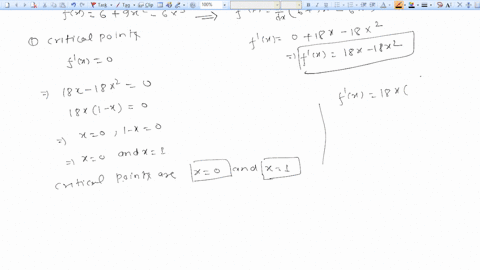 f'(x) = 6 + 9x² - 6x³ ⟹
① critical points
f'(x) = 0
⇒ 18x - 18x² = 0
18x (1-x) = 0
⇒ x=0 , 1-x=0
⇒ x=0 and x=1
critical points are x=0 and x=1
f'(x) = 0 + 18x - 18x²
⇒ f'(x) = 18x - 18x²
f'(x) = 18x (